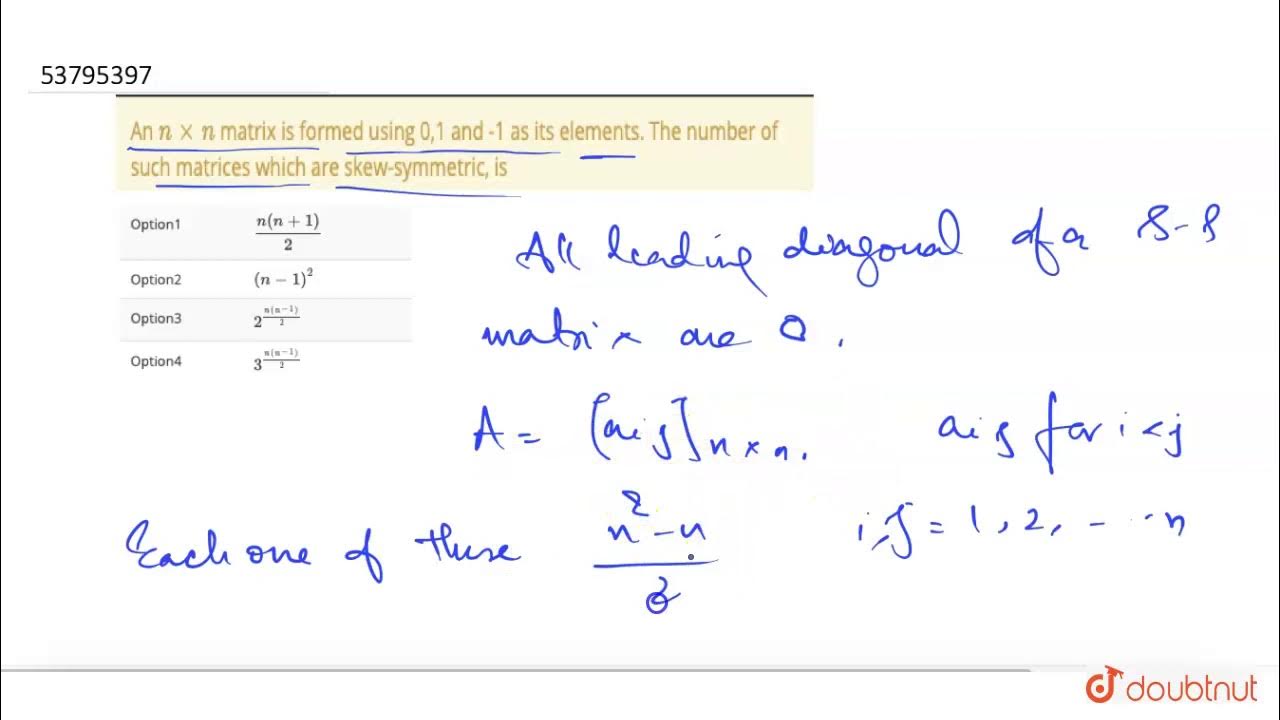 53795397
An n × n matrix is formed using 0,1 and -1 as its elements. The number of
such matrices which are skew-symmetric, is
Option1 n(n + 1)/2
Option2 (n − 1)^2
Option3 2^(n(n−1)/2)
Option4 3^(n(n−1)/2)
All leading diagonal of a S-S
matrix are 0.
A = [aij] n × n. aij for i < j
i,j = 1, 2, - - - n
Each one of these n^2 - n / 2
doubtnut